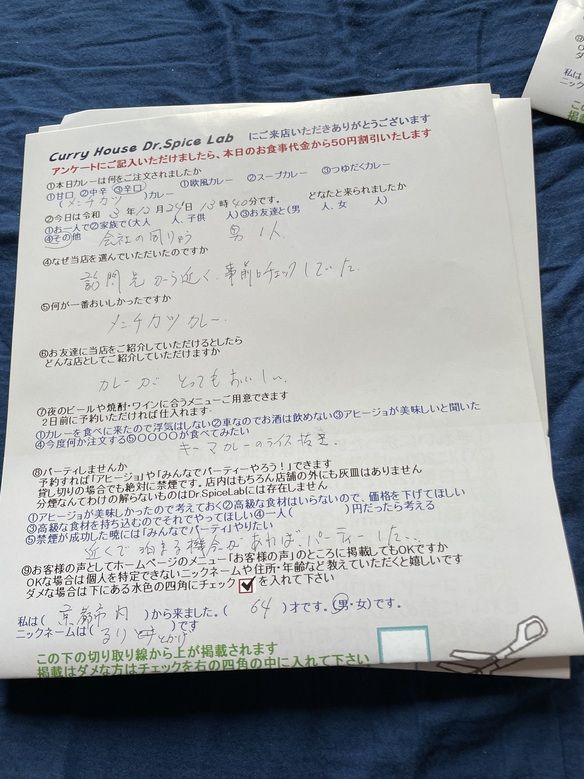 Curry House Dr.Spice Lab にご来店いただきありがとうございます
アンケートにご記入いただけましたら、本日のお食事代金から50円割引いたします
①本日カレーは何をご注文されましたか
①甘口 ②中辛 ③辛口 ①欧風カレー ②スープカレー ③つゆだくカレー
(メンチカツ)カレー
②今日は令和 3 年 12 月 24 日 13 時 40 分です。 どなたと来られましたか
①お一人で②家族で(大人 人、子供 人)③お友達と(男 人、女 人)
④その他 会社の同りょう 男 1人
④なぜ当店を選んでいただいたのですか
訪問先から近く、事前にチェックしていた。
⑤何が一番おいしかったですか
メンチカツカレー。
⑥お友達に当店をご紹介していただけるとしたら
どんな店としてご紹介していただけますか
カレーが とってもおいしい。
⑦夜のビールや焼酎・ワインに合うメニューご用意できます
2日前に予約いただければ仕入れます。
①カレーを食べに来たので浮気はしない②車なのでお酒は飲めない③アヒージョが美味しいと聞いた
④今度何か注文する⑤〇〇〇〇が食べてみたい
キーマカレーのライス抜き。
⑧パーティしませんか
予約すれば「アヒージョ」や「みんなでパーティーやろう!」できます
貸し切りの場合でも絶対に禁煙です。店内はもちろん店舗の外にも灰皿はありません
分煙なんてわけの解らないものはDr.SpiceLabには存在しません
①アヒージョが美味しかったので考えておく②高級な食材はいらないので、価格を下げてほしい
③高級な食材を持ち込むのでそれでやってほしい④一人( )円だったら考える
⑤禁煙が成功した暁には「みんなでパーティ」やりたい
近くで泊まる機会があればパーティーしたい。
⑨お客様の声としてホームページのメニュー「お客様の声」のところに掲載してもOKですか
OKな場合は個人を特定できないニックネームや住所・年齢など教えていただくと嬉しいです
ダメな場合は下にある水色の四角にチェック を入れて下さい
私は( 京都市内 )から来ました。( 64 )才です。(男・女)です。
ニックネームは( )です
この下の切り取り線から上が掲載されます
掲載はダメな方はチェックを右の四角の中に入れて下さい
私は
ニック
この